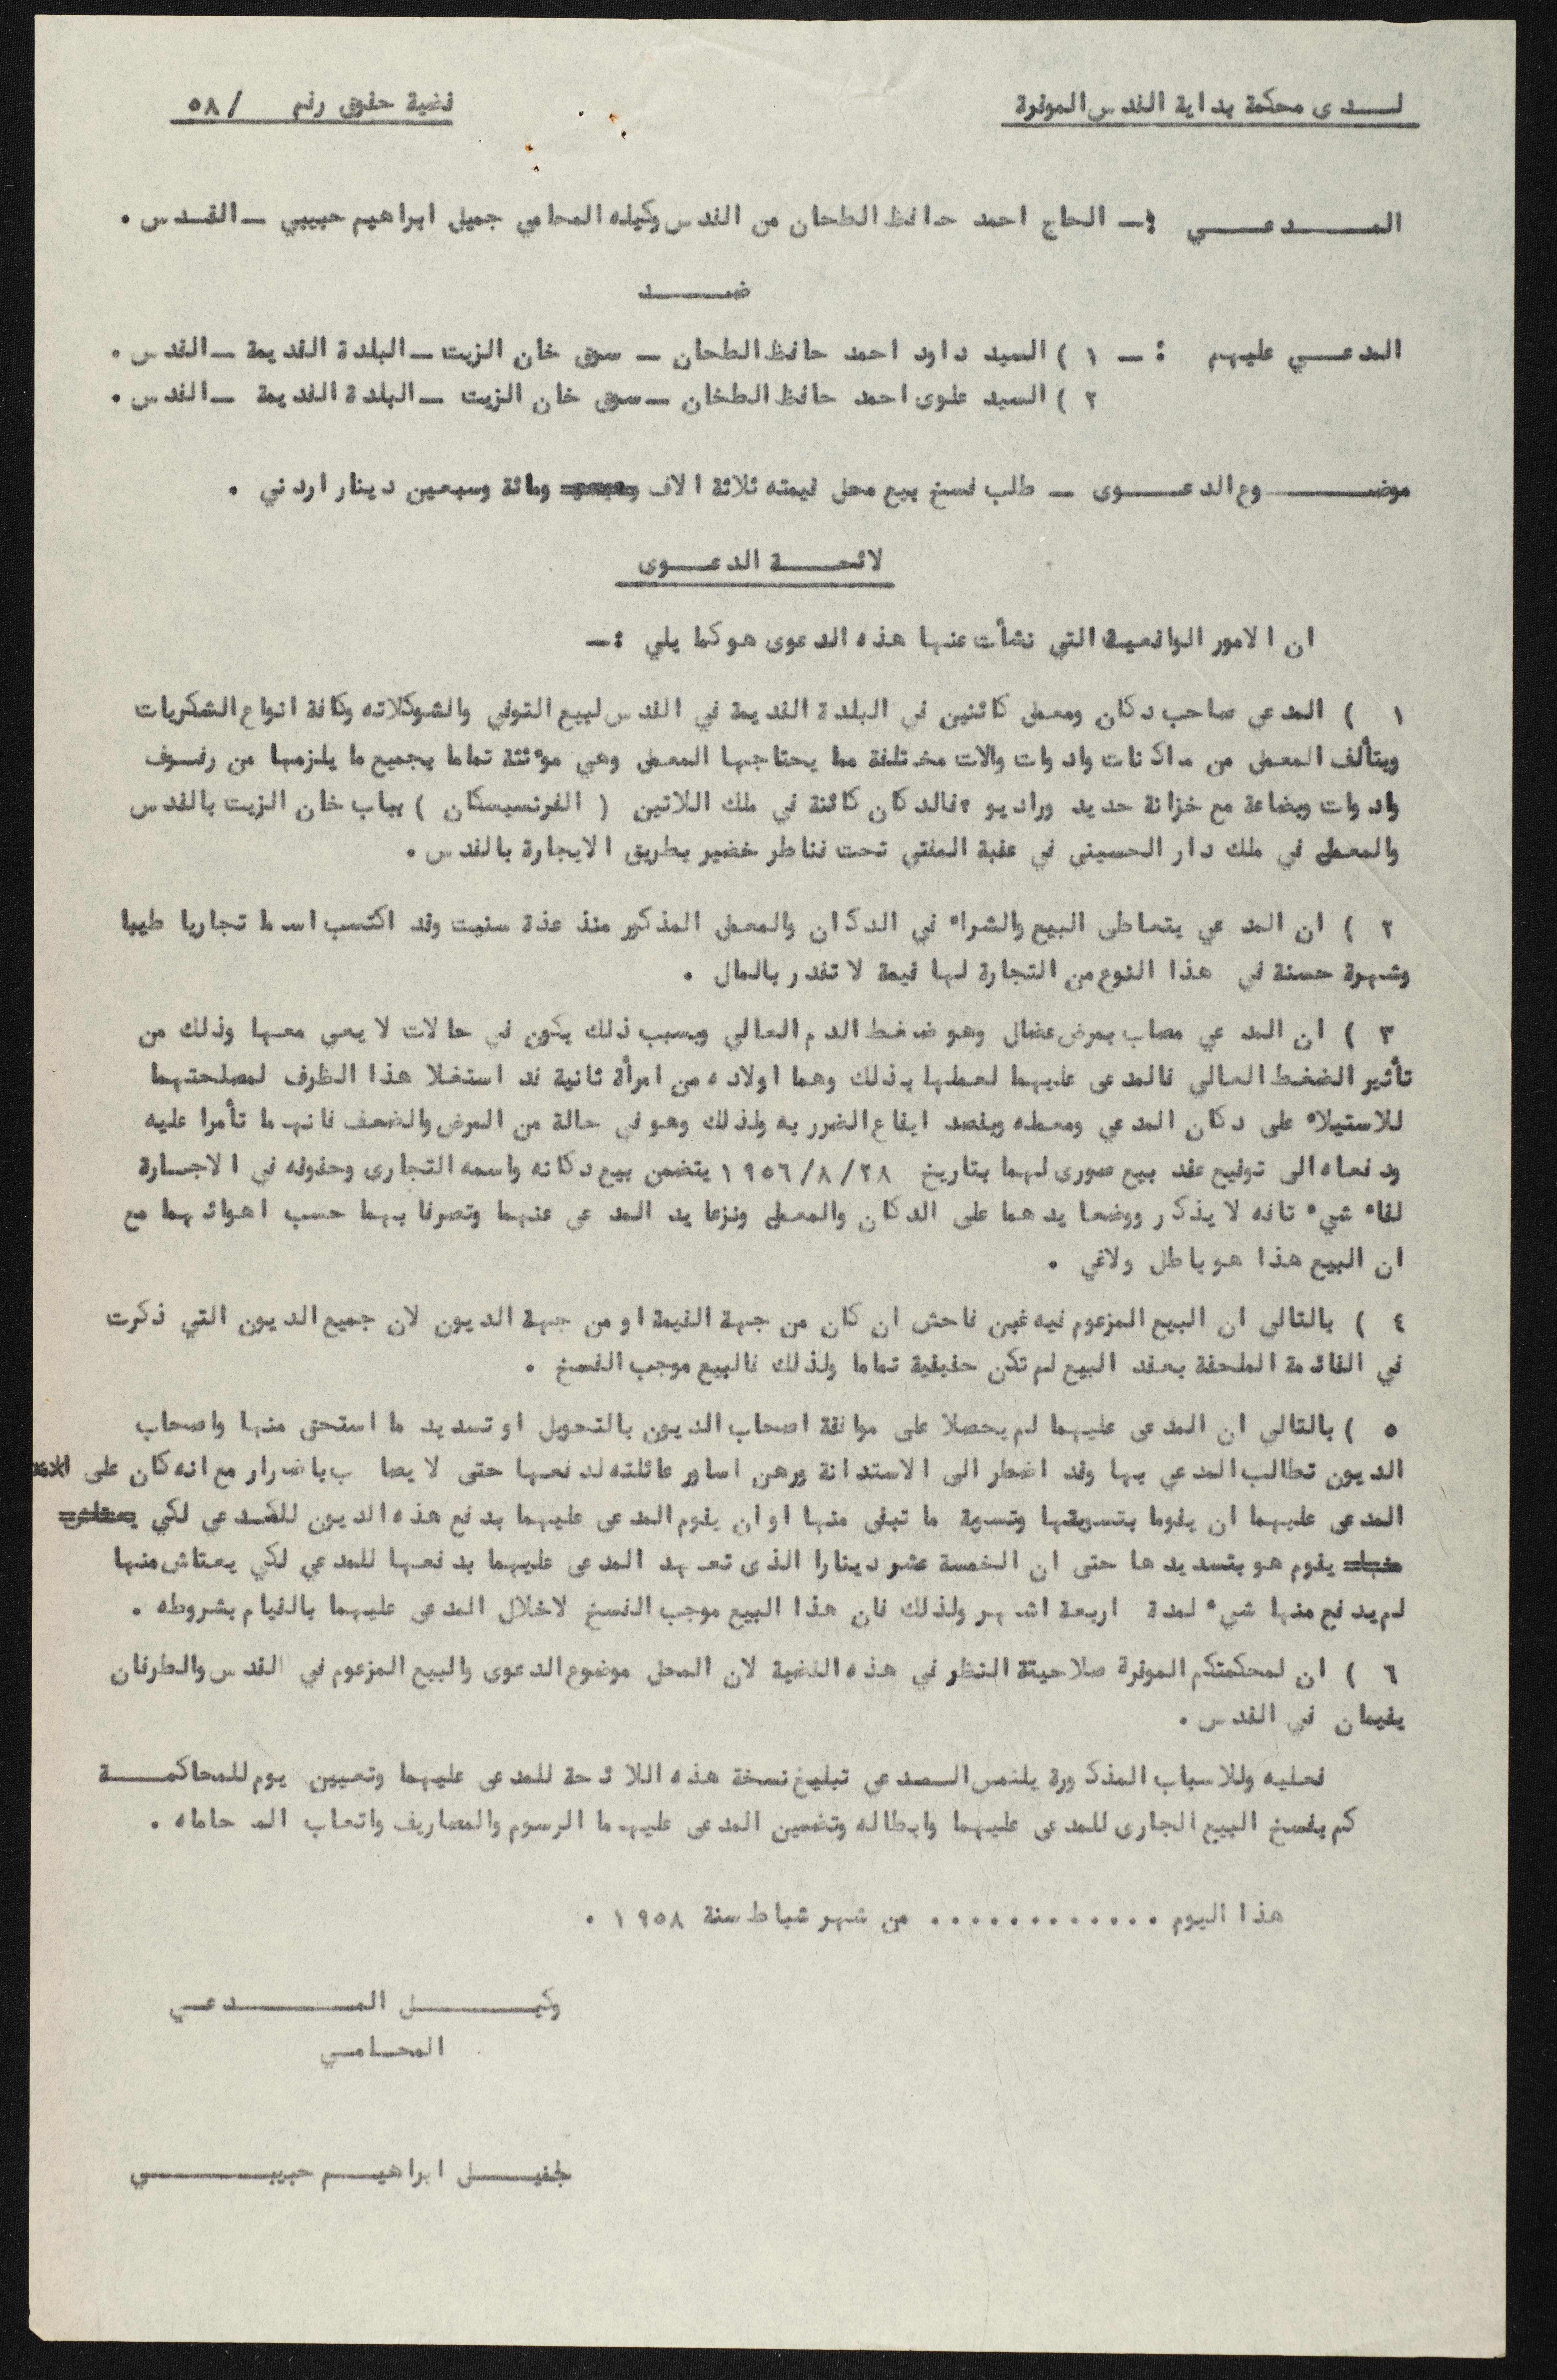 لدى محكمة بداية القدس الموقرة
قضية حقوق رقم /٥٨
المدعي :- الحاج احمد حافظ الطحان من القدس وكيله المحامي جميل ابراهيم حبيبي - القدس .
ضد
المدعي عليهم :- ١ ) السيد داود احمد حافظ الطحان - سوق خان الزيت - البلدة القديمة - القدس .
٢ ) السيد علوى احمد حافظ الطخان - سوق خان الزيت - البلدة القديمة - القدس .
موضوع الدعوى - طلب فسخ بيع محل قيمته ثلاثة الاف ومائة وسبعين دينار اردني .
لائحة الدعوى
ان الامور الواقعية التي نشأت عنها هذه الدعوى هو كما يلي :-
١ ) المدعي صاحب دكان ومعمل كائنين في البلدة القديمة في القدس لبيع التوفي والشوكلاته وكافة انواع الشكريات
ويتألف المعمل من ماكنات وادوات والات مختلفة مما يحتاجها المعمل وهي موءثثة تماما بجميع ما يلزمها من رفوف
وادوات وبضاعة مع خزانة حديد وراديو ٢ فالدكان كائنة في ملك اللاتين ( الفرنسيسكان ) بباب خان الزيت بالقدس
والمعمل في ملك دار الحسيني في عقبة المفتي تحت قناطر خضير بطريق الايجارة بالقدس .
٢ ) ان المدعي يتعاطى البيع والشراء في الدكان والمعمل المذكور منذ عذة سنيت وقد اكتسب اسما تجاريا طيبا
وشهرة حسنة في هذا النوع من التجارة لها قيمة لا تقدر بالمال .
٣ ) ان المدعي مصاب بمرض عضال وهو ضغط الدم العالي وبسبب ذلك يكون في حالات لا يعي معها وذلك من
تأثير الضغط العالي فالمدعى عليهما لعملها بذلك وهما اولاده من امرأة ثانية قد استغلا هذا الظرف لمصلحتهما
للاستيلاء على دكان المدعي ومعمله وبقصد ايقاع الضرر به ولذلك وهو في حالة من المرض والضعف فانهما تأمرا عليه
ودفعاه الى توقيع عقد بيع صورى لهما بتاريخ ٢٨/٨/١٩٥٦ يتضمن بيع دكانه واسمه التجارى وحقوقه في الاجارة
لقاء شيء تافه لا يذكر ووضعا يدهما على الدكان والمعمل ونزعا يد المدعى عنهما وتصرفا بهما حسب اهوائهما مع
ان البيع هذا هو باطل ولاغي .
٤ ) بالتالي ان البيع المزعوم فيه غبن فاحش ان كان من جهة القيمة او من جهة الديون لان جميع الديون التي ذكرت
في القائمة الملحقة بعقد البيع لم تكن حقيقية تماما ولذلك فالبيع موجب الفسخ .
٥ ) بالتالي ان المدعى عليهما لم يحصلا على موافقة اصحاب الديون بالتحويل او تسديد ما استحق منها واصحاب
الديون تطالب المدعي بها وقد اضطر الى الاستدانة ورهن اساور عائلته لدفعها حتى لا يصاب باضرار مع انه كان على
المدعى عليهما ان يقوما بتسويقها وتسوية ما تبقى منها او ان يقوم المدعى عليهما بدفع هذه الديون للمدعي لكي
يقوم هو بتسديدها حتى ان الخمسة عشر دينارا الذى تعهد المدعى عليهما بدفعها للمدعي لكي يعتاش منها
لم يدفع منها شيء لمدة اربعة اشهر ولذلك فان هذا البيع موجب الفسخ لاخلال المدعى عليهما بالقيام بشروطه .
٦ ) ان لمحكمتكم الموقرة صلاحيتة النظر في هذه القضية لان المحل موضوع الدعوى والبيع المزعوم في القدس والطرفان
يقيمان في القدس .
فعليه وللاسباب المذكورة يلتمس المدعي تبليغ نسخة هذه اللائحة للمدعى عليهما وتعيين يوم للمحاكمة
كم بفسخ البيع الجارى للمدعى عليهما وابطاله وتضمين المدعى عليهما الرسوم والمصاريف واتعاب المحاماه .
هذا اليوم ............ من شهر شباط سنة ١٩٥٨ .
وكيل المدعي
المحامي
ابراهيم حبيبي